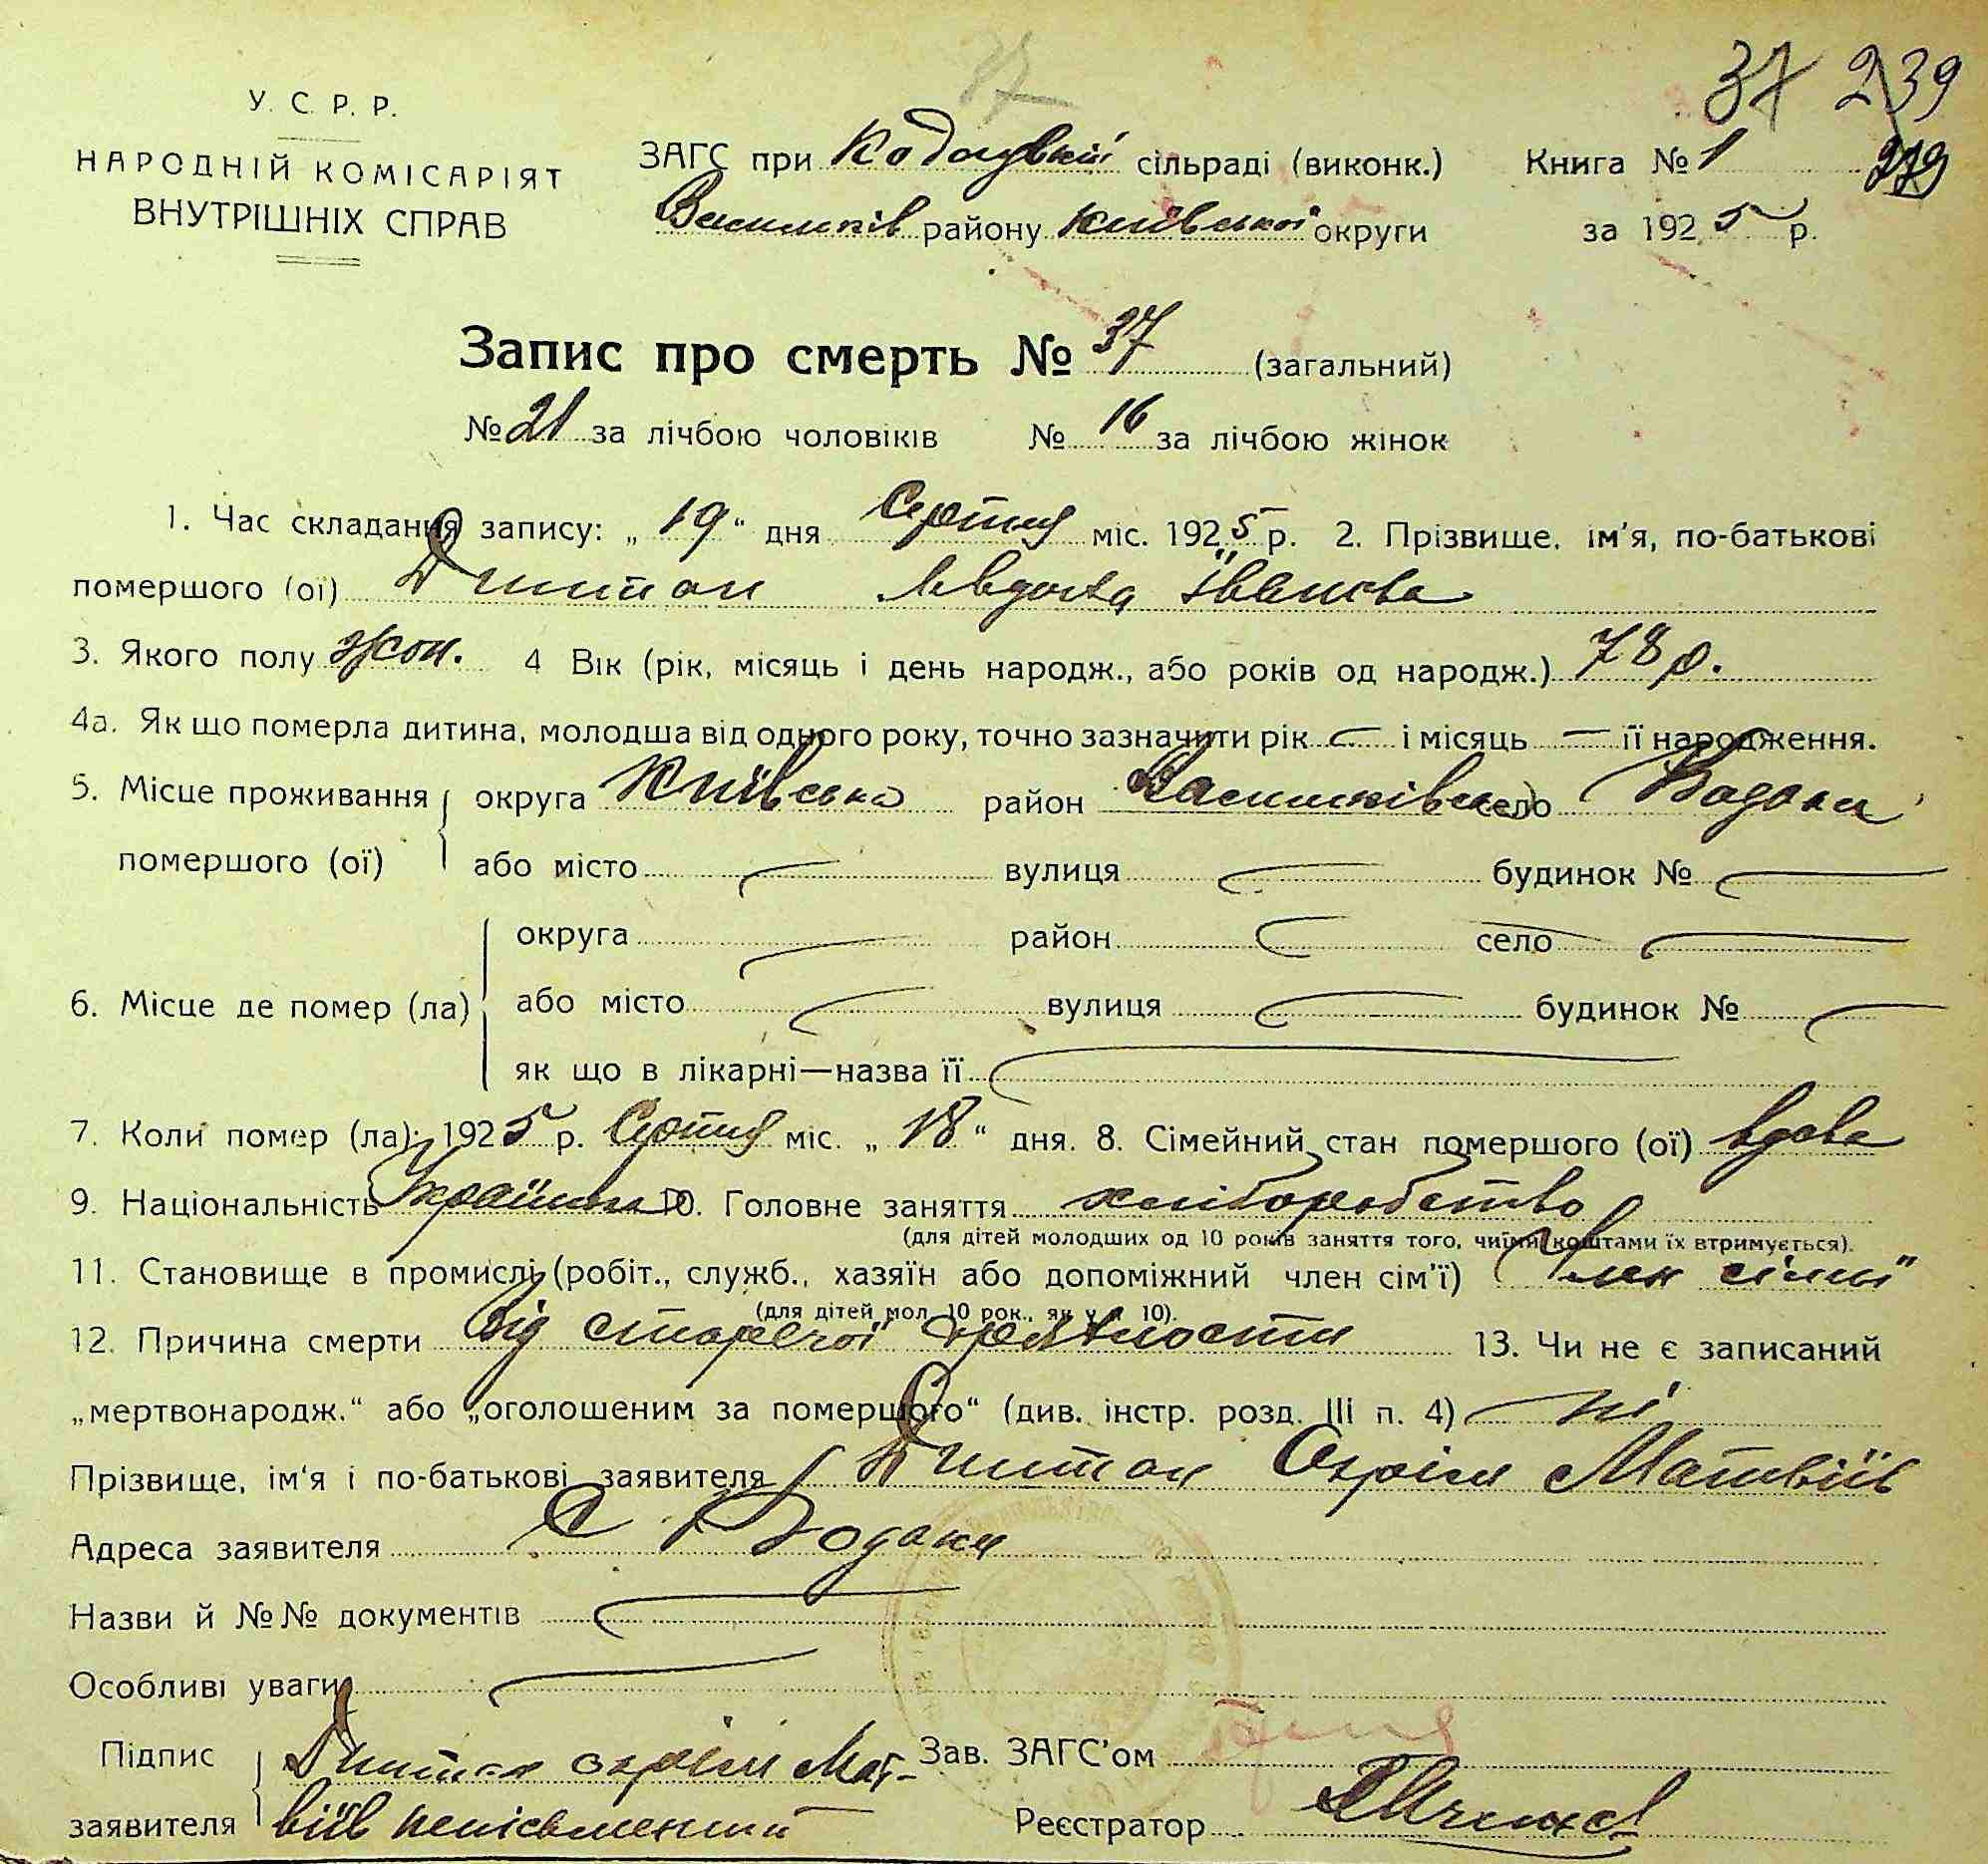 37 239
У. С. Р. Р.
НАРОДНІЙ КОМІСАРІЯТ
ВНУТРІШНІХ СПРАВ
ЗАГС при сільраді (виконк.) Книга № 1
Васильків району Київської округи за 1925 р.
Запис про смерть № 37 (загальний)
№ 21 за лічбою чоловіків № 16 за лічбою жінок
1. Час складання запису: „19“ дня Серпня міс. 1925 р. 2. Прізвище, ім'я, по-батькові
помершого (ої) Євдоха Іванова
3. Якого полу жон. 4 Вік (рік, місяць і день народж., або років од народж.) 78 р.
4а. Як що померла дитина, молодша від одного року, точно зазначити рік — і місяць — її народження.
5. Місце проживання помершого (ої) округа Київська район Васильківськ село Водоки
або місто — вулиця — будинок № —
6. Місце де помер (ла) округа — район — село —
або місто — вулиця — будинок № —
як що в лікарні—назва її —
7. Коли помер (ла): 1925 р. Серпня міс. „18“ дня. 8. Сімейний стан помершого (ої) вдова
9. Національність Українка 10. Головне заняття хліборобство
(для дітей молодших од 10 років заняття того, чиїми коштами їх втримується).
11. Становище в промислі (робіт., служб., хазяїн або допоміжний член сім'ї) Член сімьї
(для дітей мол. 10 рок., як у п. 10).
12. Причина смерти Від старечої дряхлости 13. Чи не є записаний
„мертвонародж.“ або „оголошеним за помершого“ (див. інстр. розд. III п. 4) ні
Прізвище, ім'я і по-батькові заявителя Охрім Матвіїв
Адреса заявителя С Водоки
Назви й №№ документів —
Особливі уваги —
Підпис заявителя охрім Мат-
віїв неписьменний
Зав. ЗАГС'ом
Реєстратор